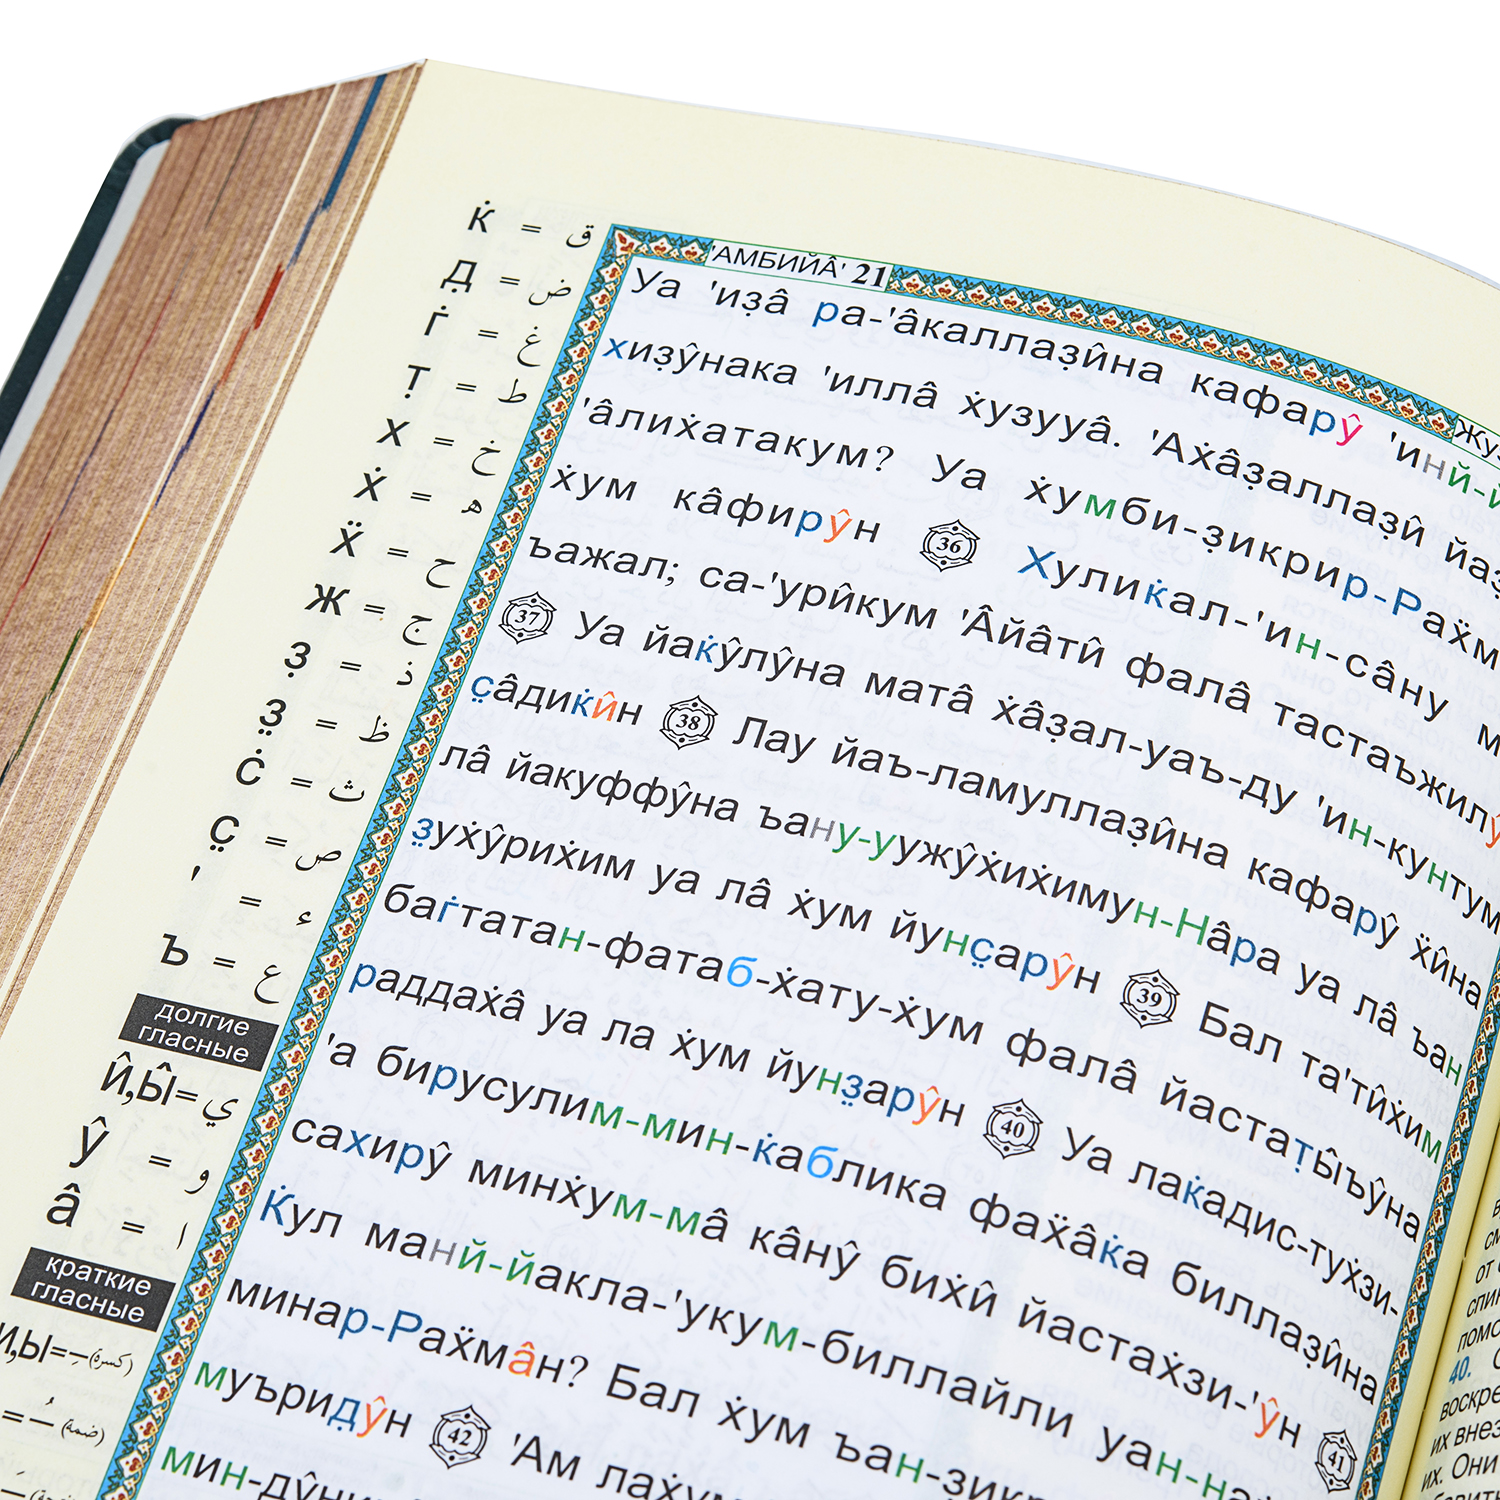 К̇ = ق
Д̣ = ض
Г̇ = غ
Т̣ = ط
Х = خ
Х̇ = ه
Ẍ = ح
Ж = ج
З̣ = ذ
З̤ = ظ
Ċ = ث
С̤ = ص
' = ء
Ъ = ع
долгие
гласные
Й̂,Ы̂= ي
У̂ = و
Â = ا
краткие
гласные
И,Ы= ِ (كسرة)
= ُ (ضمة)
'АМБИЙÂ' 21
Уа 'из̣â ра-'âкаллаз̣и̂на кафару̂ 'инй-й
хиз̣у̂нака 'иллâ х̇узууâ. 'Ах̇âз̣аллаз̣и̂
'âлих̇атакум? Уа х̇умби-з̣икрир-Раẍм
х̇ум кâфиру̂н 36 Хулик̇ал-'ин-сâну
ъажал; са-'ури̂кум 'Âйâти̂ фалâ тастаъжилу̂
37 Уа йак̇у̂лу̂на матâ х̇âз̣ал-уаъ-ду 'ин-кунтум
с̤âдик̇и̂н 38 Лау йаъ-ламуллаз̣и̂на кафару̂ ẍи̂на
лâ йакуффу̂на ъану-уужу̂х̇их̇имун-Нâра уа лâ ъан
з̤ух̇у̂рих̇им уа лâ х̇ум йунс̤ару̂н 39 Бал та'ти̂х̇им
баг̇татан-фатаб-х̇ату-х̇ум фалâ йастат̣ы̂ъу̂на
раддах̇â уа ла х̇ум йунз̤ару̂н 40 Уа лак̇адис-тух̇зи-
'а бирусулим-мин-к̇аблика фаẍâк̇а биллаз̣и̂на
сахиру̂ минх̇ум-мâ кâну̂ бих̇и̂ йастах̇зи-'у̂н 41
К̇ул манй-йакла-'укум-биллайли уан-н
минар-Раẍмâн? Бал х̇ум ъан-з̣икр
муърид̣у̂н 42 'Ам лах̇ум
мин-ду̂ни
от
40.
воскре
их внез
их. Они